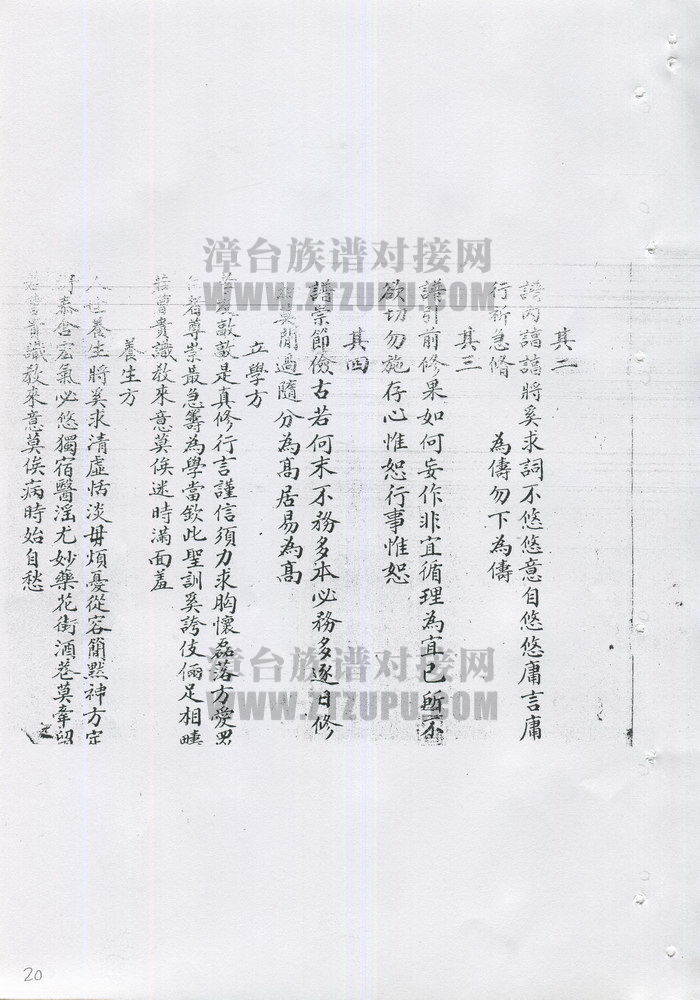 其二
譜內譆譆將奚求詞不悠悠意自悠悠庸言庸
行新急脩 為儔勿下為儔
其三
譜引前修果如何妄作非宜循理為宜已所不
欲切勿施存心惟恕行事惟恕
其四
譜崇節儉古若何末不務多本必務多逐日修
閒過隨分為高居易為高
立學方
敦敦是真修行言謹信須力求胸懷磊落方愛眾
者尊崇最急籌為學當欽此聖訓奚誇伎倆足相疇
富貴識教來意莫俟迷時滿面羞
養生方
人世養生將奚求清虛恬淡毋煩憂從容簡默神方定
泰含宏氣必悠獨宿醫淫尤妙藥花街酒巷莫牽留
富貴識教來意莫俟病時始自愁
漳台族谱对接网
WWW.ZTZUPU.COM
漳台族谱对接网
WWW.ZTZUPU.COM
20